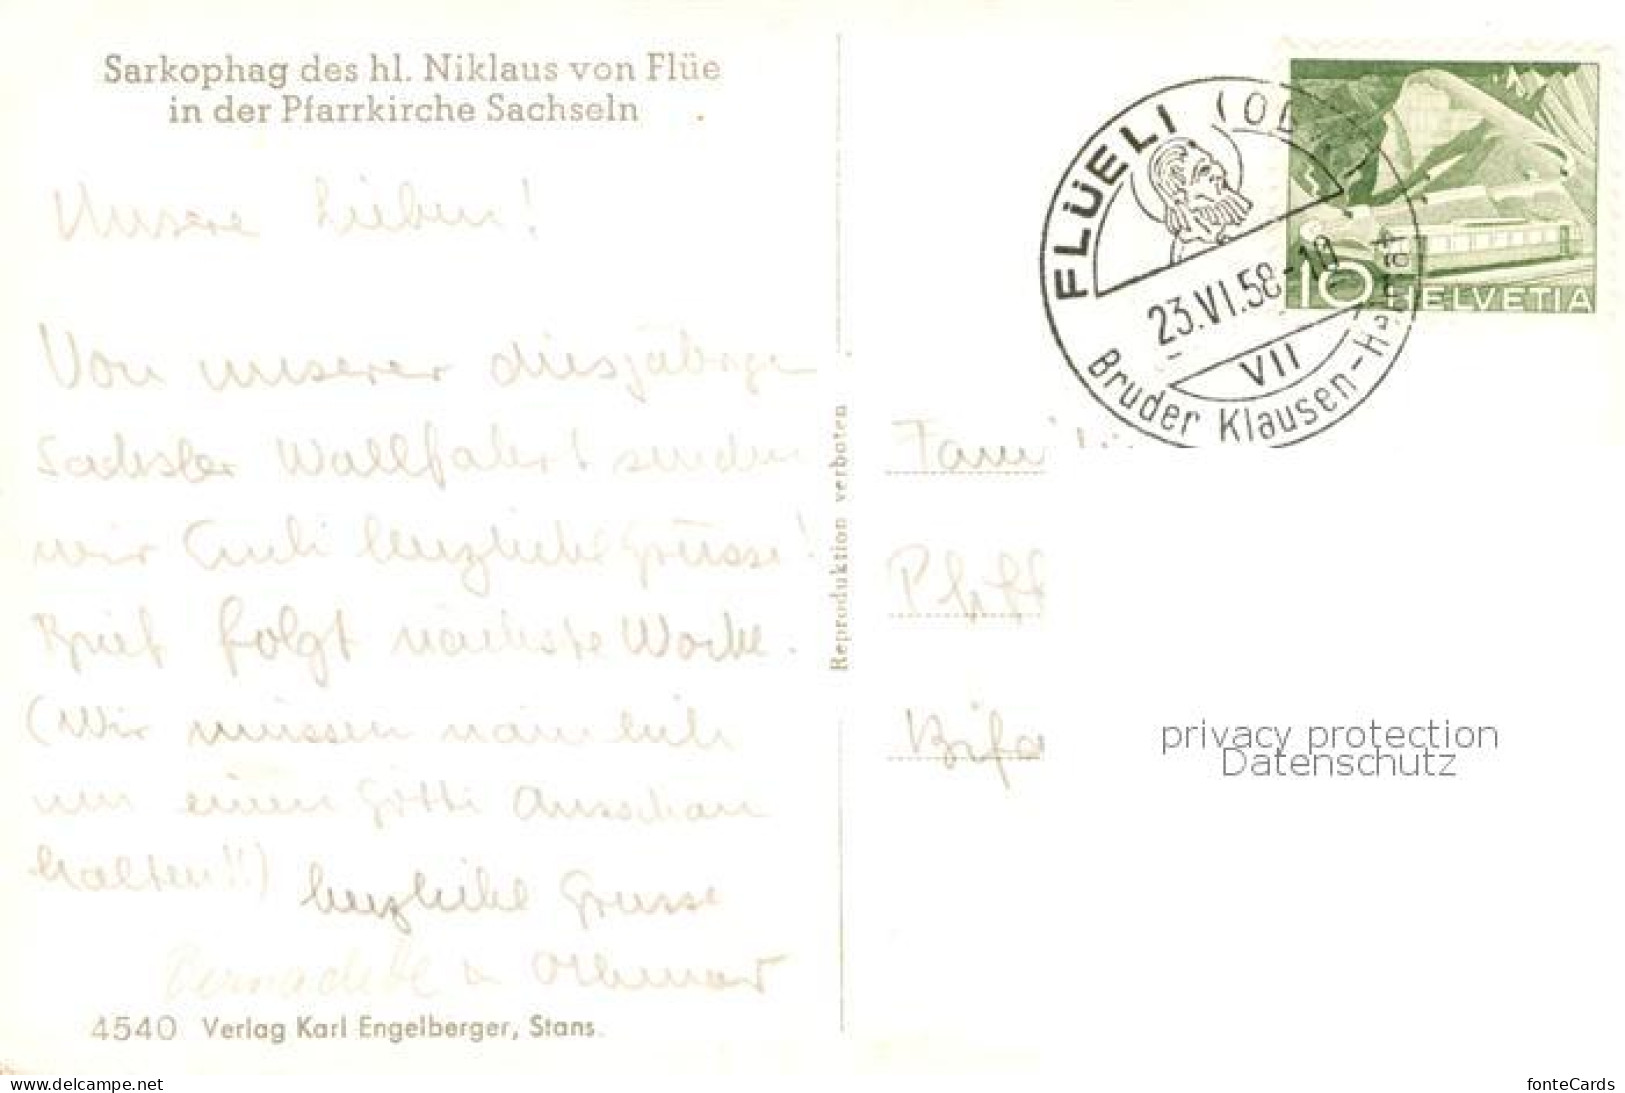 Sarkophag des hl. Niklaus von Flüe
in der Pfarrkirche Sachseln
Unsere Lieben!
Von unserer diesjährigen
Sachsler Wallfahrt senden
wir Euch herzliche Grüsse!
Brief folgt nächste Woche.
(Wir müssen nämlich
um einen Götti Ausschau
halten!!)
herzliche Grüsse
Bernadette u Othmar
4540 Verlag Karl Engelberger, Stans.
Reproduktion verboten
FLÜELI (OB
23.VI.58-10
VII
Bruder Klausen-Heimat
10 HELVETIA
Famili
Bifa
privacy protection
Datenschutz
www.delcampe.net
fonteCards